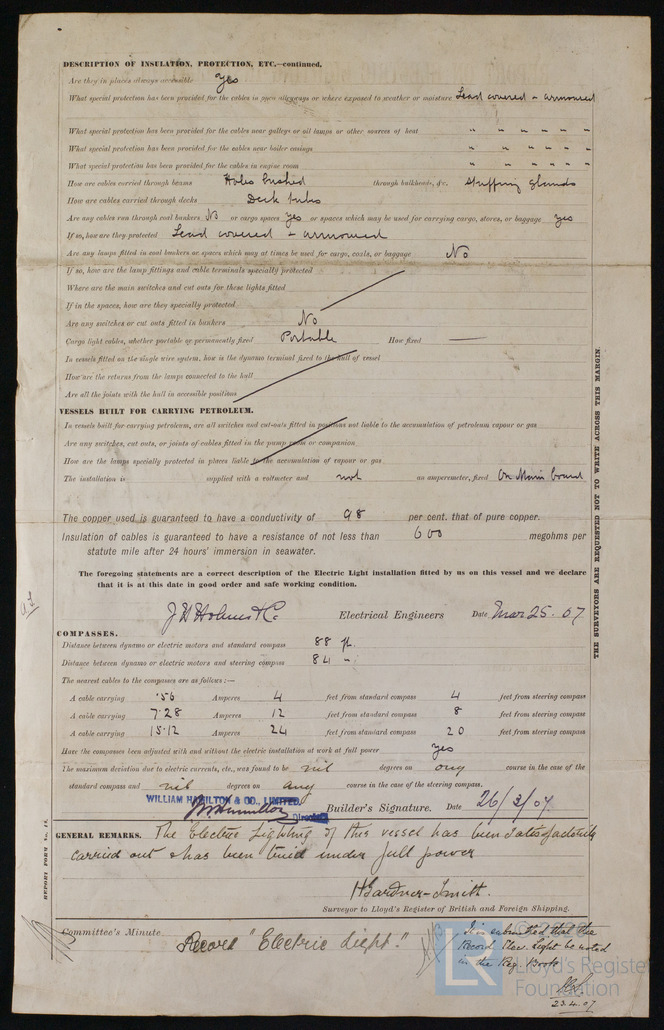 DESCRIPTION OF INSULATION, PROTECTION, ETC.—continued.
Are they in places always accessible Yes
What special protection has been provided for the cables in open alleyways or where exposed to weather or moisture Lead covered & armoured
What special protection has been provided for the cables near galleys or oil lamps or other sources of heat " " " " " "
What special protection has been provided for the cables near boiler casings " " " " " "
What special protection has been provided for the cables in engine room " " " " " "
How are cables carried through beams Holes bushed through bulkheads, &c. Stuffing Glands
How are cables carried through decks Deck tubes
Are any cables run through coal bunkers No or cargo spaces yes or spaces which may be used for carrying cargo, stores, or baggage yes
If so, how are they protected Lead covered & armoured
Are any lamps fitted in coal bunkers or spaces which may at times be used for cargo, coals, or baggage No
If so, how are the lamp fittings and cable terminals specially protected
Where are the main switches and cut outs for these lights fitted
If in the spaces, how are they specially protected
Are any switches or cut outs fitted in bunkers No
Cargo light cables, whether portable or permanently fixed Portable How fixed —
In vessels fitted on the single wire system, how is the dynamo terminal fixed to the hull of vessel
How are the returns from the lamps connected to the hull
Are all the joints with the hull in accessible positions
VESSELS BUILT FOR CARRYING PETROLEUM.
In vessels built for carrying petroleum, are all switches and cut-outs fitted in positions not liable to the accumulation of petroleum vapour or gas
Are any switches, cut outs, or joints of cables fitted in the pump room or companion
How are the lamps specially protected in places liable to the accumulation of vapour or gas
The installation is supplied with a voltmeter and an amperemeter, fixed On Main board
The copper used is guaranteed to have a conductivity of 98 per cent. that of pure copper.
Insulation of cables is guaranteed to have a resistance of not less than 600 megohms per
statute mile after 24 hours' immersion in seawater.
The foregoing statements are a correct description of the Electric Light installation fitted by us on this vessel and we declare
that it is at this date in good order and safe working condition.
J H Holmes & Co. Electrical Engineers Date Mar 25. 07
COMPASSES.
Distance between dynamo or electric motors and standard compass 88 ft.
Distance between dynamo or electric motors and steering compass 84 "
The nearest cables to the compasses are as follows:—
A cable carrying .56 Amperes 4 feet from standard compass 4 feet from steering compass
A cable carrying 7.28 Amperes 12 feet from standard compass 8 feet from steering compass
A cable carrying 15.12 Amperes 24 feet from standard compass 20 feet from steering compass
Have the compasses been adjusted with and without the electric installation at work at full power yes
The maximum deviation due to electric currents, etc., was found to be nil degrees on any course in the case of the
standard compass and nil degrees on any course in the case of the steering compass.
WILLIAM HAMILTON & CO., LIMITED.
Director Builder's Signature. Date 26/3/07
GENERAL REMARKS. The Electric Lighting of this vessel has been satisfactorily
carried out & has been tried under full power
H Gardner-Smith.
Surveyor to Lloyd's Register of British and Foreign Shipping.
Committee's Minute Record "Electric Light."
It is submitted that the
Record Elec. Light be noted
in the Reg. Book
23.4.07
THE SURVEYORS ARE REQUESTED NOT TO WRITE ACROSS THIS MARGIN.
REPORT FORM No. 14.
LR
Lloyd's Register
Foundation